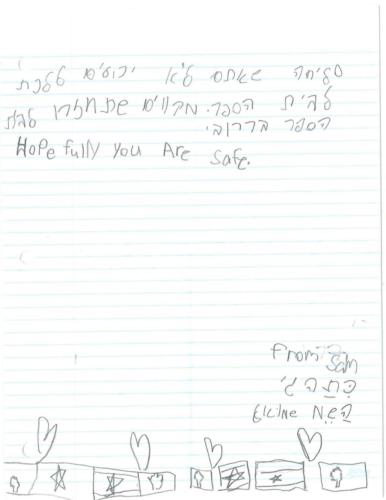 סליחה שאתם לא יכולים ללכת
לבית הספר. מקווים שתחזרו לבית
הספר בקרוב.
Hopefully you Are Safe.
From Sam
כתה ג'